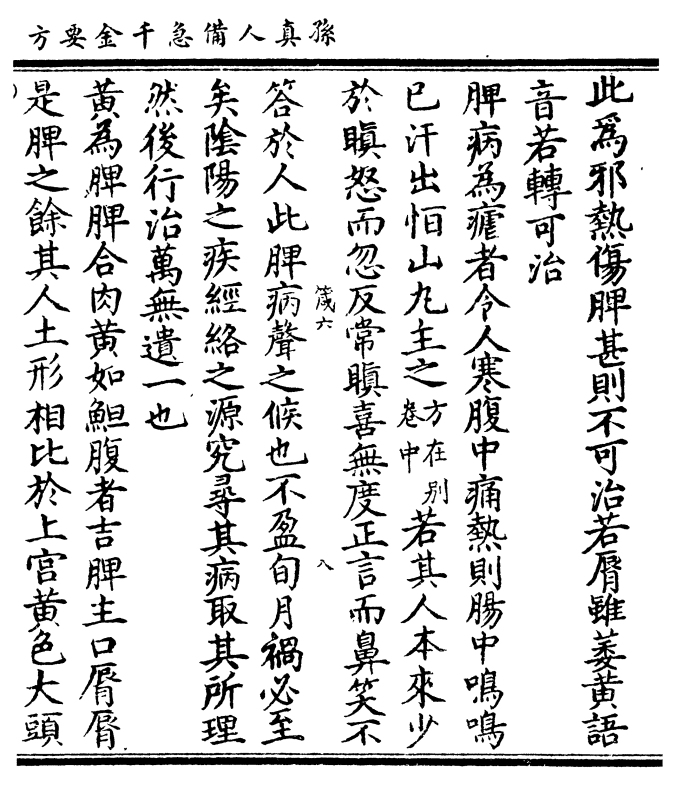 孫真人備急千金要方
此為邪熱傷脾甚則不可治若脣雖萎黃語
音若轉可治
脾病為瘧者令人寒腹中痛熱則腸中鳴鳴
已汗出恒山丸主之方在別卷中若其人本來少
於瞋怒而忽反常瞋喜無度正言而鼻笑不
箴六
八
答於人此脾病聲之候也不盈旬月禍必至
矣陰陽之疾經絡之源究尋其病取其所理
然後行治萬無遺一也
黃為脾脾合肉黃如鱓腹者吉脾主口脣脣
是脾之餘其人土形相比於上宮黃色大頭